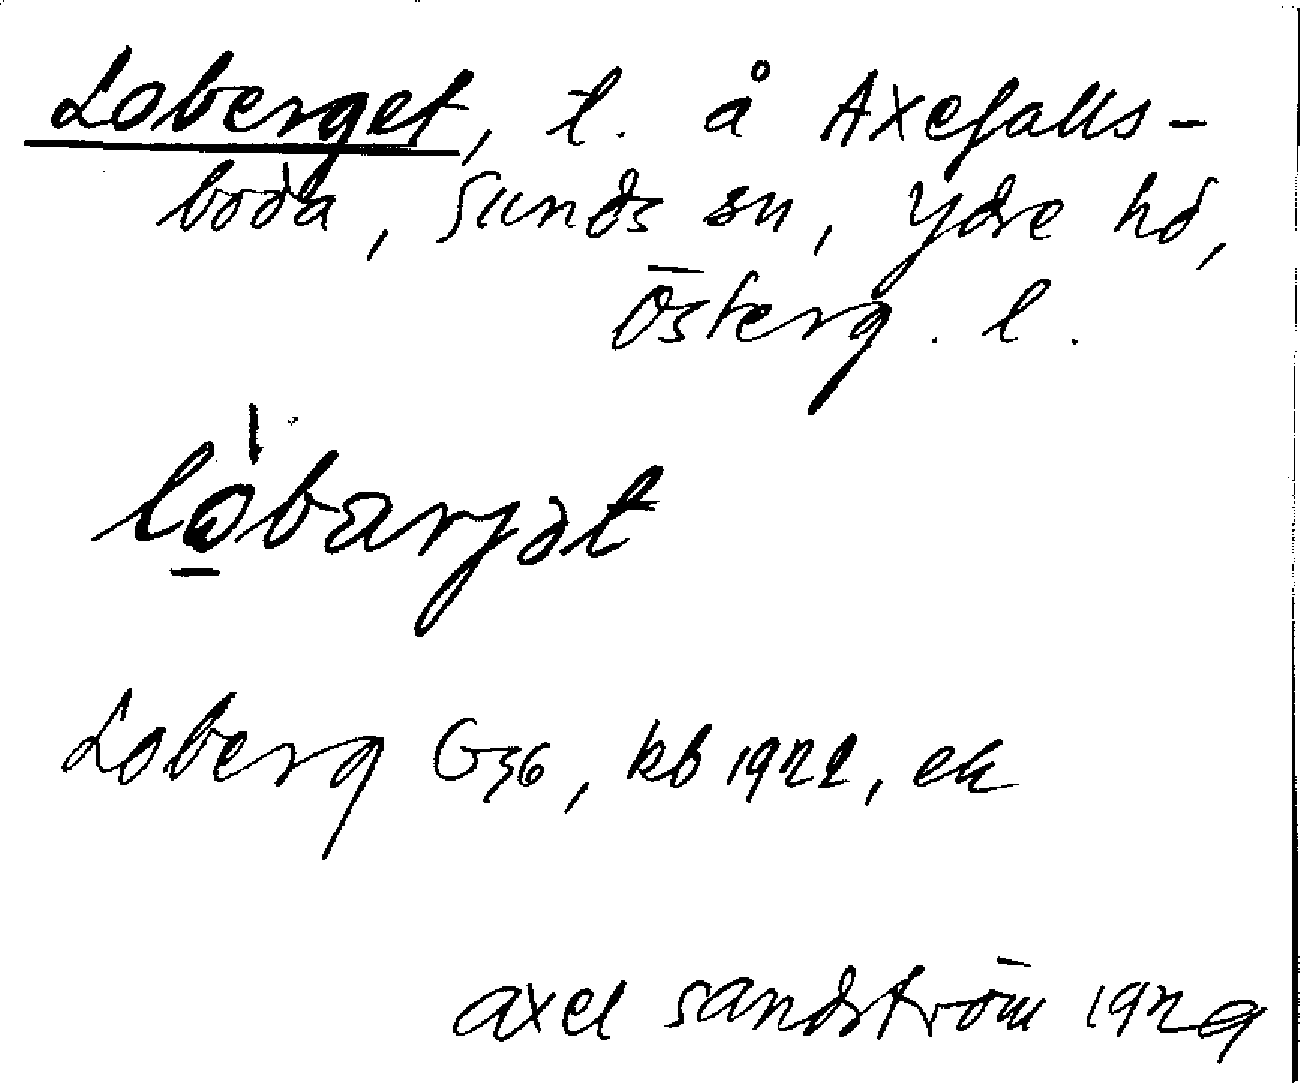 Loberget, t. å Axefalls-
boda, Sunds sn, Ydre hd,
Österg. l.
lo̠barjət
Loberg G36, kb 1922, ek
axel sandström 1929